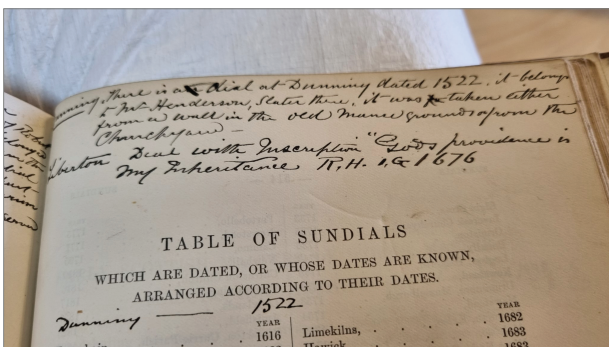 Dunning There is a dial at Dunning dated 1522. it belongs
to Mr Henderson, Slater there, it was taken either
from a wall in the old Manse grounds or from the
Churchyard –
Liberton Dial with Inscription "Gods providence is
my Inheritance R.H. I.G 1676
TABLE OF SUNDIALS
WHICH ARE DATED, OR WHOSE DATES ARE KNOWN,
ARRANGED ACCORDING TO THEIR DATES.
Dunning —— 1522
YEAR
1616
YEAR
1682
Limekilns, . . . 1683